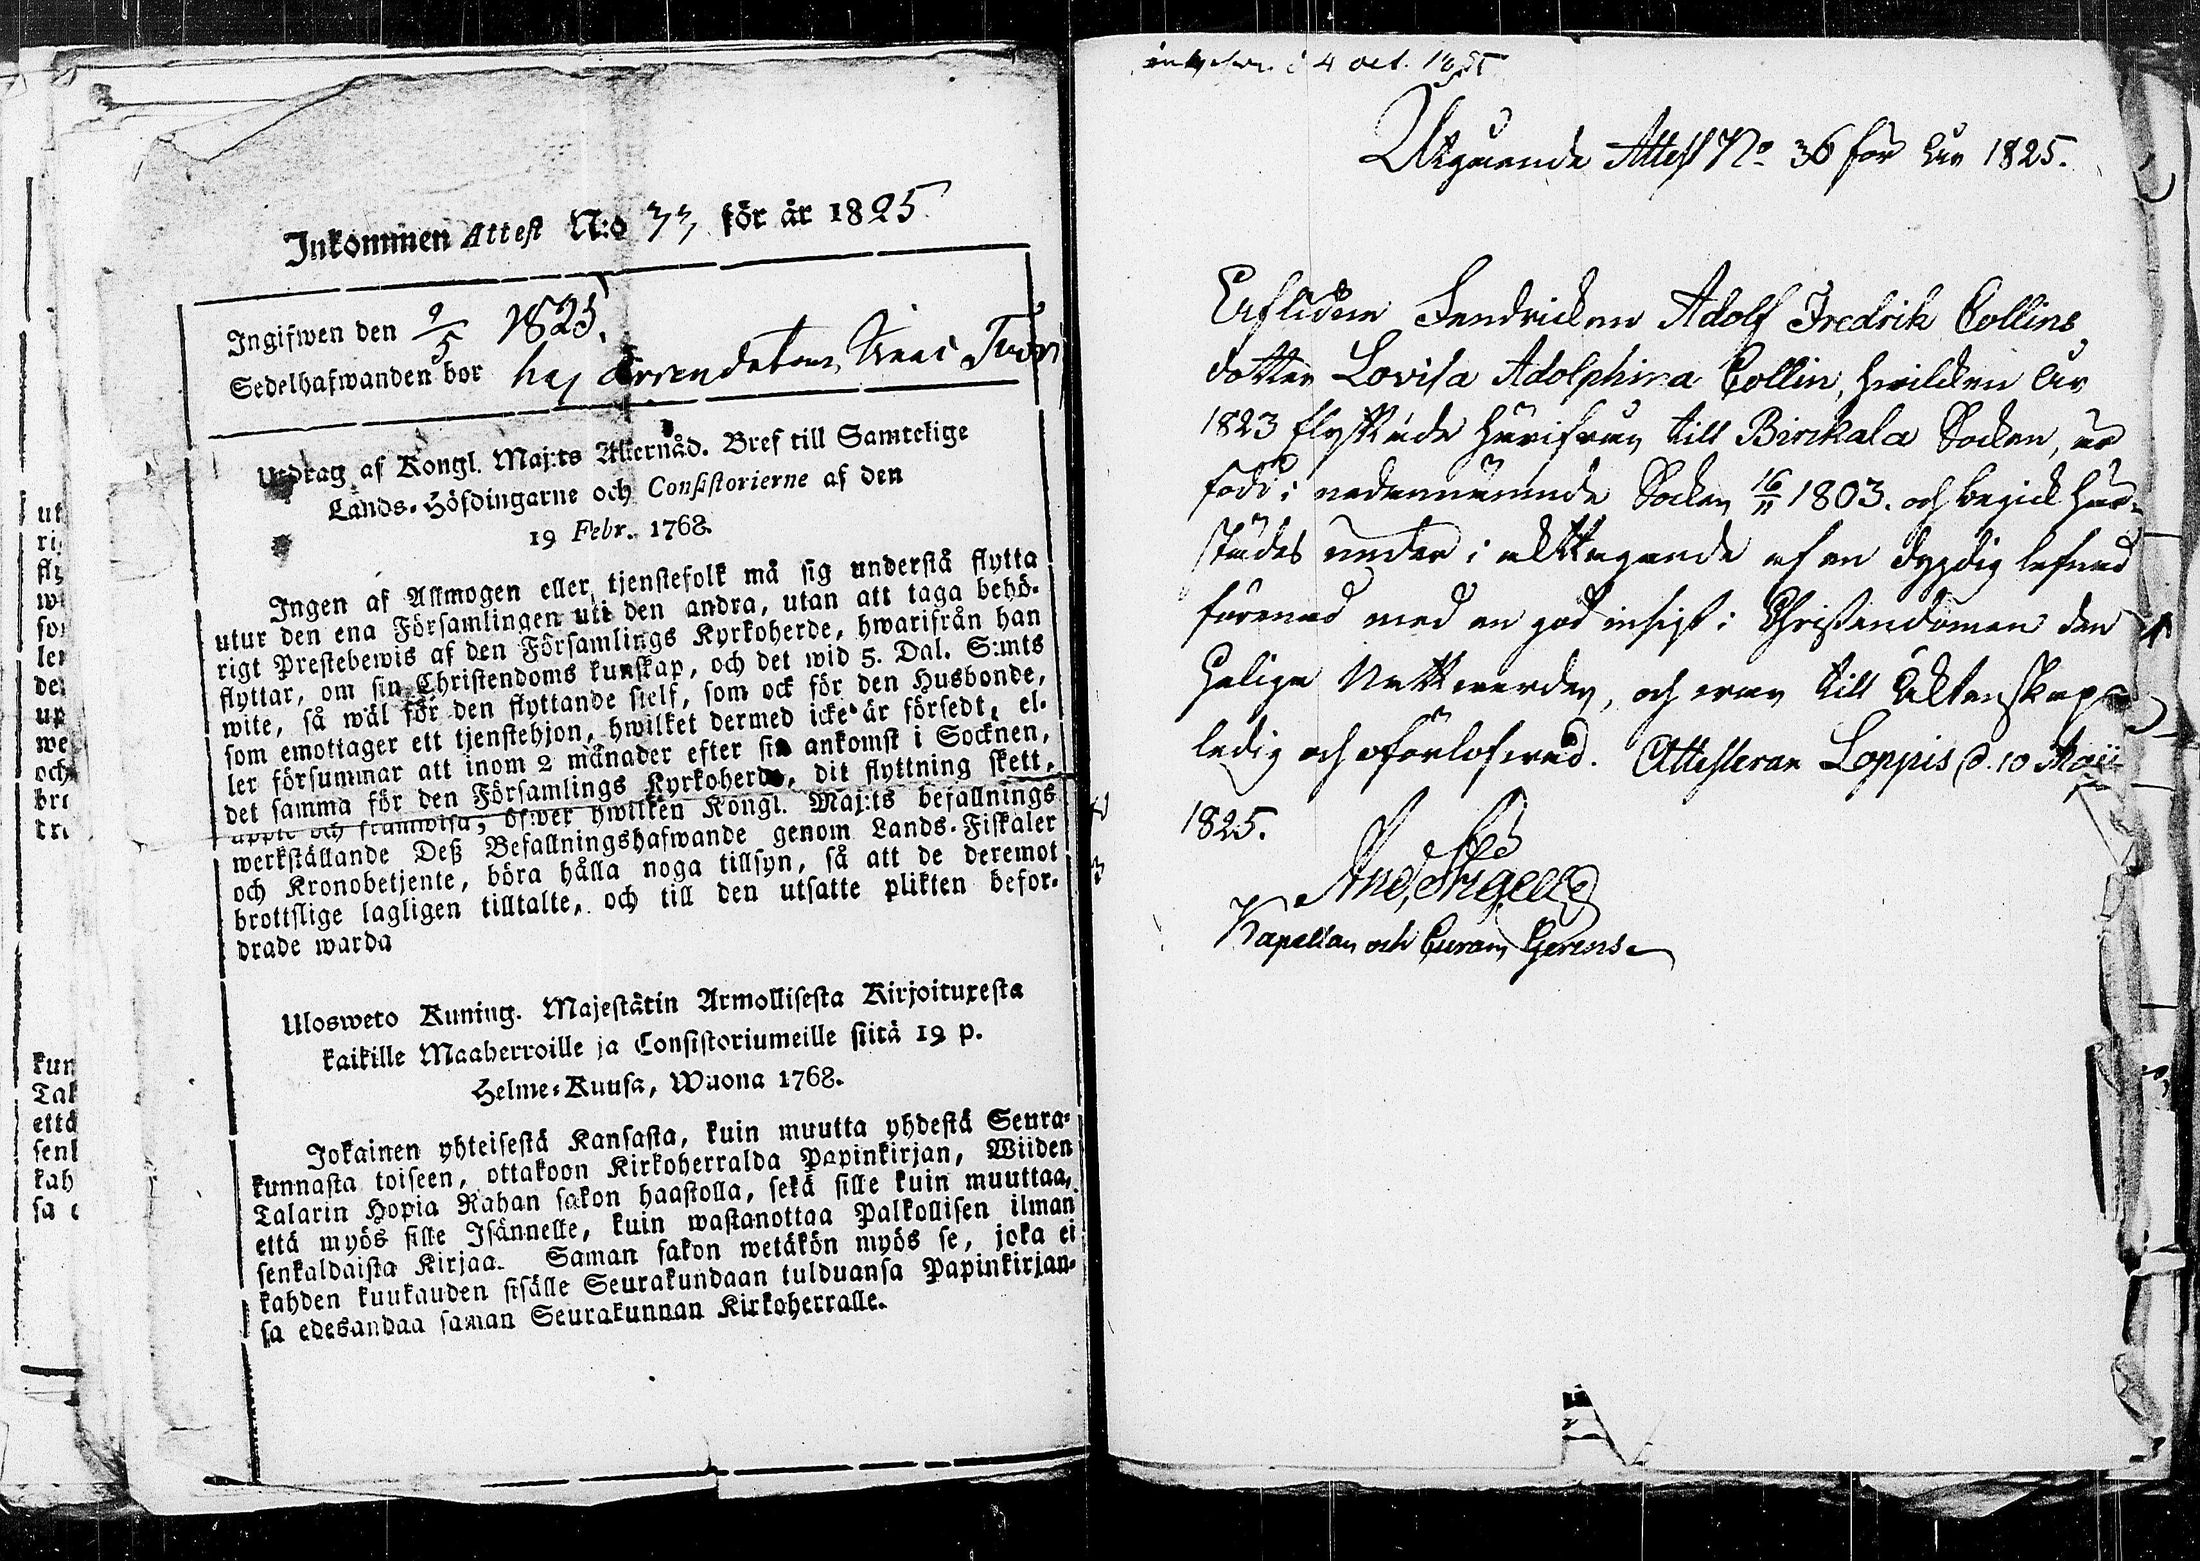 Inkommen Attest N:o 33 för år 1825
Ingifwen den 9/5 1825.
Sedelhafwanden bor hos Arrendatorn
Utdrag af Kongl. Maj:ts Allernåd. Bref till Samtelige
Lands-Höfdingarne och Consistorierne af den
19 Febr. 1768.
Ingen af Allmogen eller tjenstefolk må sig understå flytta
utur den ena Församlingen uti den andra, utan att taga behö-
rigt Prestebewis af den Församlings Kyrkoherde, hwarifrån han
flyttar, om sin Christendoms kunskap, och det wid 5. Dal. S:mts
wite, så wäl för den flyttande sielf, som ock för den Husbonde,
som emottager ett tjenstehjon, hwilket dermed icke är försedt, el-
ler försummar att inom 2 månader efter sin ankomst i Socknen,
det samma för den Församlings Kyrkoherde, dit flyttning skett,
uppte och framwisa; öfwer hwilken Kongl. Maj:ts befallnings
werkställande Deß Befallningshafwande genom Lands-Fiskaler
och Kronobetjente, böra hålla noga tillsyn, så att de deremot
brottslige lagligen tilltalte, och till den utsatte plikten befor-
drade warda
Ulosweto Kuning. Majestätin Armollisesta Kirjoituxesta
kaikille Maaherroille ja Consistoriumeille siitä 19 p.
Helme-Kuusa, Wuona 1768.
Jokainen yhteisestä Kansasta, kuin muutta yhdestä Seura-
kunnasta toiseen, ottakoon Kirkoherralda Papinkirjan, Wiiden
Talarin Hopia Rahan sakon haastolla, sekä sille kuin muuttaa,
että myös sille Isännelle, kuin wastanottaa Palkollisen ilman
senkaldaista Kirjaa. Saman sakon wetäkön myös se, joka ei
kahden kuukauden sisälle Seurakundaan tulduansa Papinkirjan-
sa edesandaa saman Seurakunnan Kirkoherralle.
d 4 oct. 1825
Utgående Attest No 36 för år 1825.
Aflidne Fendricken Adolf Fredrik Collins
dotter Lovisa Adolphina Collin, hwilcken år
1823 flyttade härifrån till Birckala Socken, är
född i nedannämnde Socken 16/11 1803. och begick här-
städes under i akttagande af en dygdig lefnad
förenad med en god insigt i Christendomen den
Heliga Nattvarden, och är till Äktenskap
ledig och oförlofwad. Attesterar Loppis d. 10 Maii
1825.
Kapellan och Curam Gerens